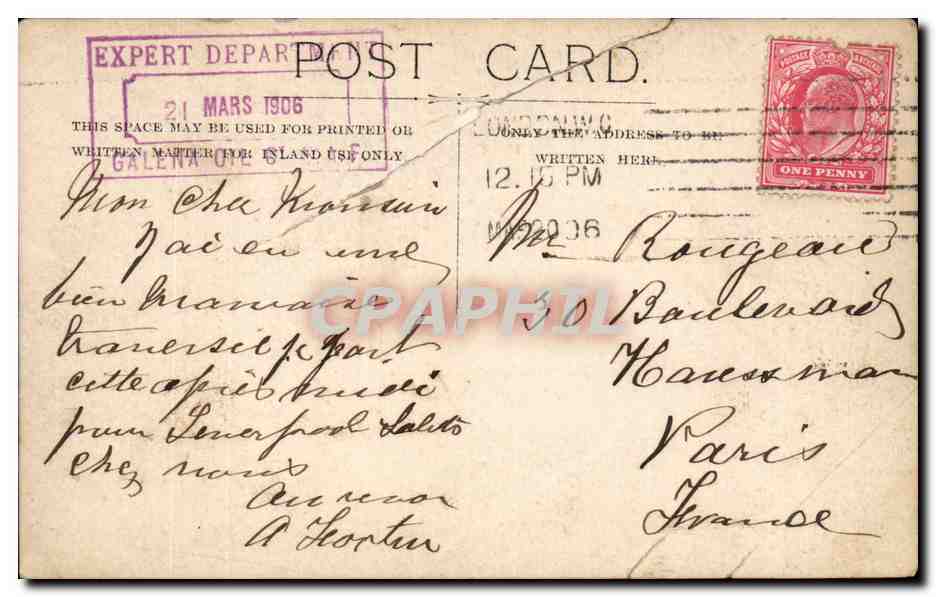 EXPERT DEPARTMENT
21 MARS 1906
GALENA OIL
POST CARD.
THIS SPACE MAY BE USED FOR PRINTED OR
WRITTEN MATTER FOR INLAND USE ONLY.
ONLY THE ADDRESS TO BE
WRITTEN HERE
LONDON.W.C
12.15 PM
MAR 20 06
POSTAGE & REVENUE
ONE PENNY
Mon cher Monsieur
J'ai eu une
bien mauvaise
traversee je part
cette apres midi
pour Leverpool Saluts
chez nous
Au revoir
A
Mr Rougeau
30 Boulevard
Haussman
Paris
France
CPAPHIL